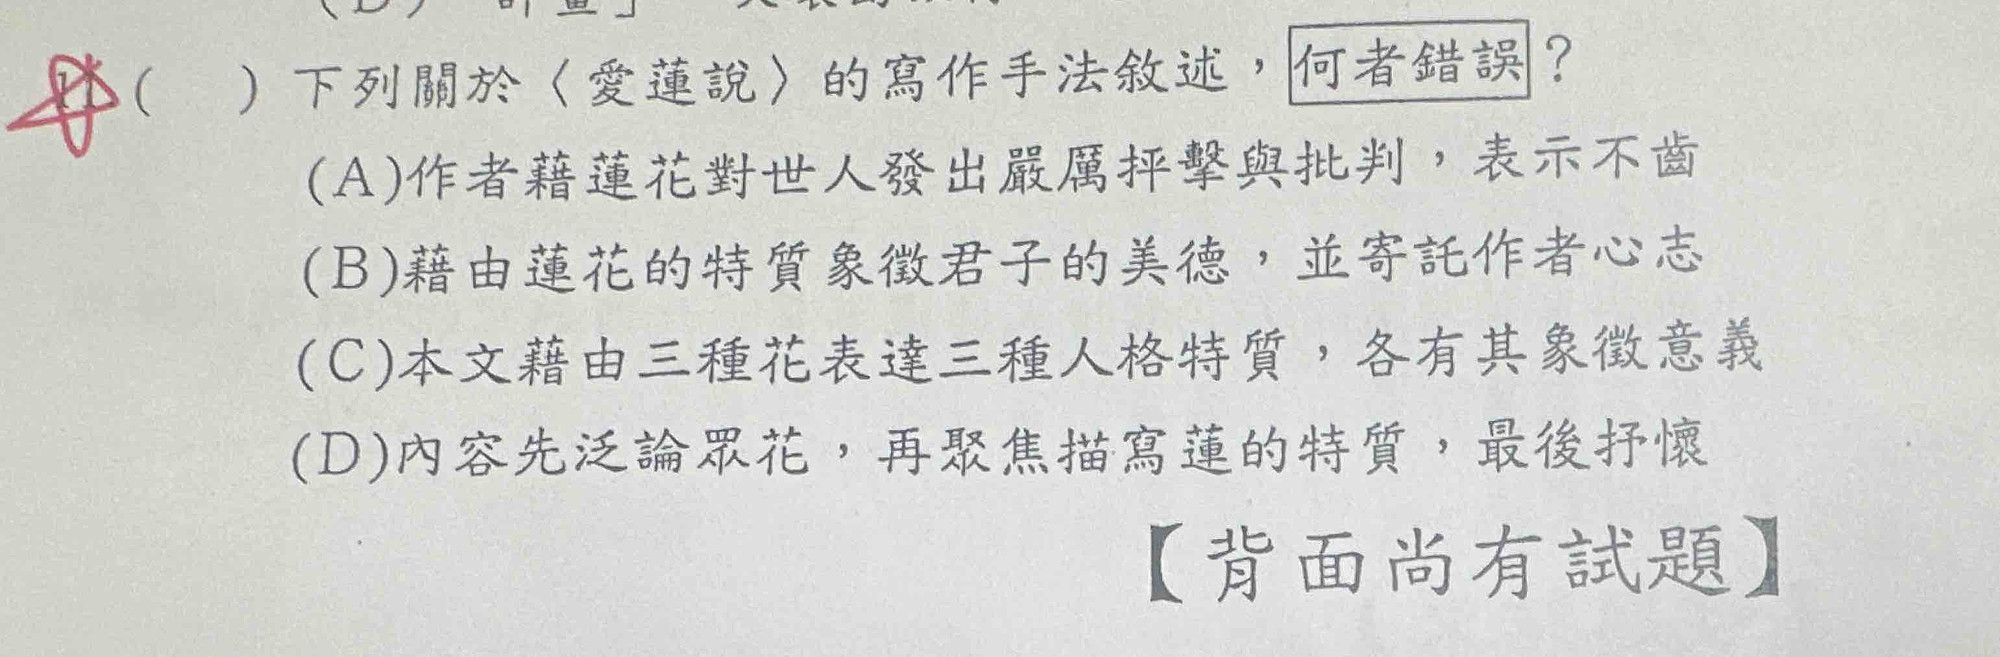 ( ) 下列關於〈愛蓮說〉的寫作手法敘述，何者錯誤？
(A)作者藉蓮花對世人發出嚴厲抨擊與批判，表示不齒
(B)藉由蓮花的特質象徵君子的美德，並寄託作者心志
(C)本文藉由三種花表達三種人格特質，各有其象徵意義
(D)內容先泛論眾花，再聚焦描寫蓮的特質，最後抒懷
【背面尚有試題】